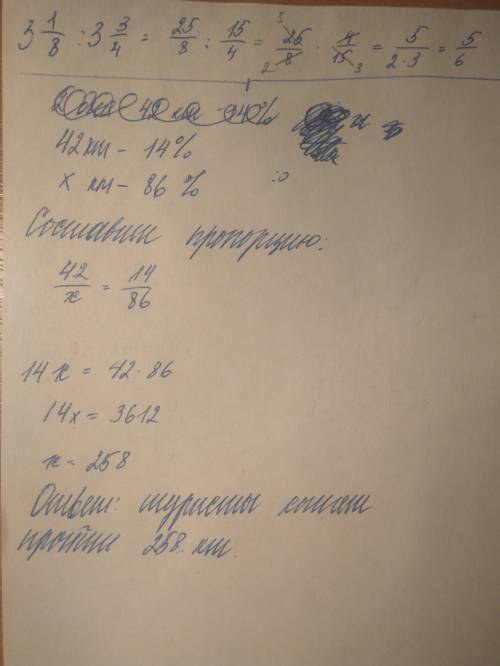 3 1/8 : 3 3/4 = 25/8 : 15/4 = 25/8 · 4/15 = 5/(2·3) = 5/6
42 км - 14%
x км - 86 %
Составим пропорцию:
42/x = 14/86
14x = 42·86
14x = 3612
x = 258
Ответ: туристы хотят
пройти 258 км.